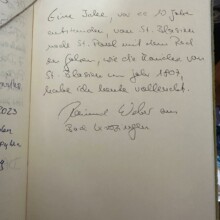 Eine Idee, vor ca 10 Jahren
entstanden, von St. Blasien
nach St. Paul mit dem Rad
zu fahren, wie die Mönche von
St. Blasien im Jahr 1807,
habe ich heute vollendet.
Weber aus
Bad
2023